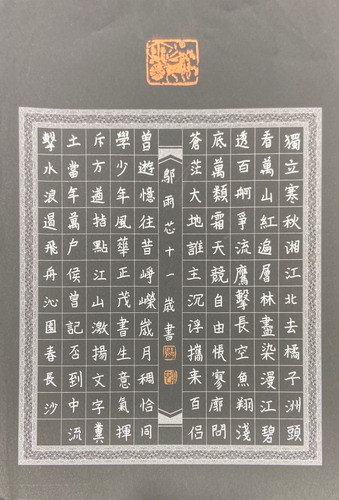 獨立寒秋湘江北去橘子洲頭
看萬山紅遍層林盡染漫江碧
透百舸爭流鷹擊長空魚翔淺
底萬類霜天競自由悵寥廓問
蒼茫大地誰主沉浮攜來百侶
雨芯十一歲書
曾遊憶往昔崢嶸歲月稠恰同
學少年風華正茂書生意氣揮
斥方遒指點江山激揚文字糞
土當年萬戶侯曾記否到中流
擊水浪遏飛舟沁園春長沙